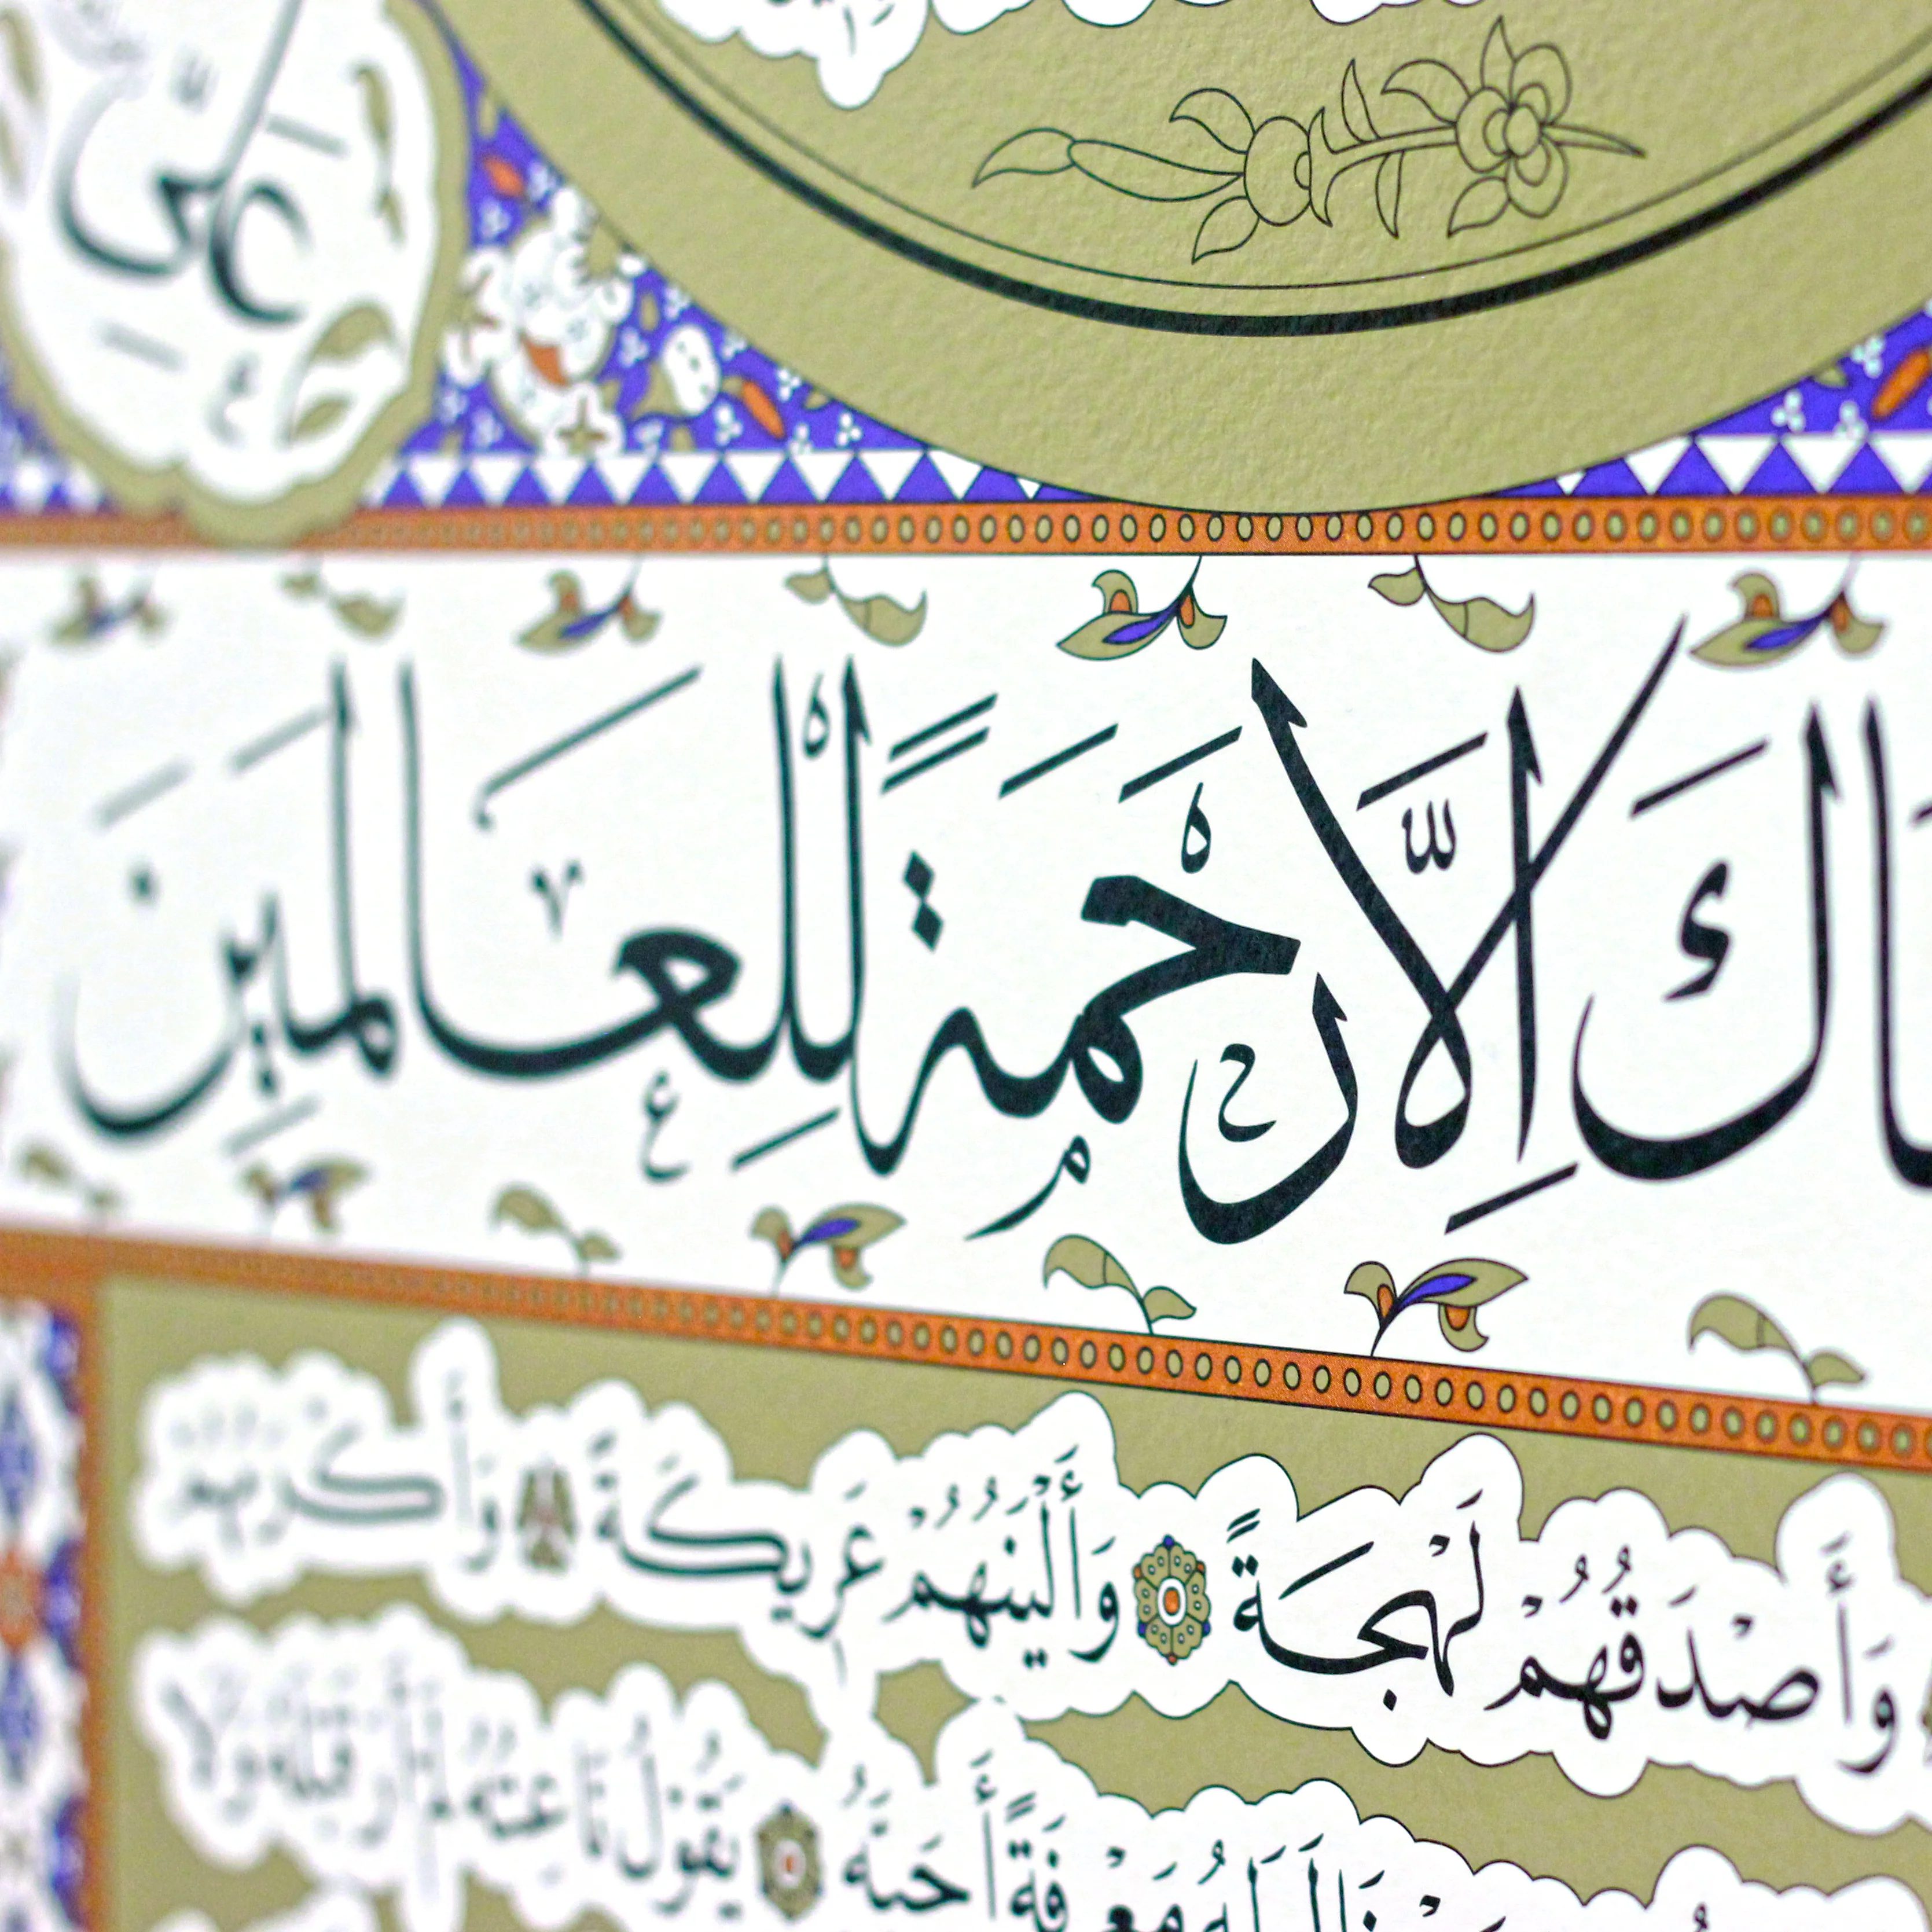 عَلِيّ
ـاكَ اِلَّا رَحْمَةً لِلْعَالَمِينَ
وَأَصْدَقُهُمْ لَهْجَةً وَأَلْيَنُهُمْ عَرِيكَةً وَأَكْرَمُهُمْ
مَعْرِفَةً أَحَبَّهُ يَقُولُ نَاعِتُهُ لَمْ أَرَ قَبْلَهُ وَلَا